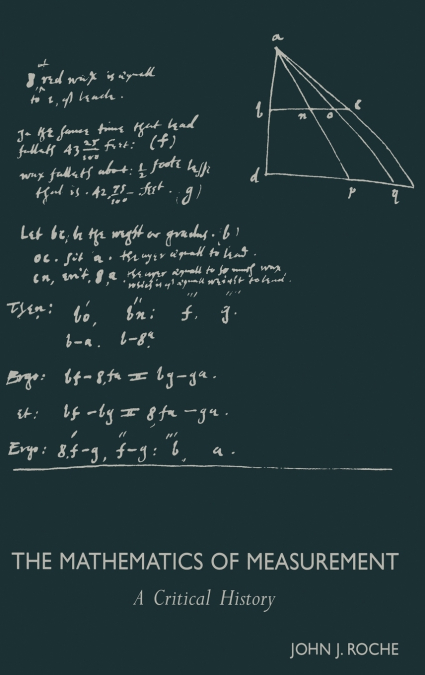 8, red wax is equall
to 1, of leade.
In the same time that lead
falleth 43 25/100 feet: (f)
wax falleth about: 1/2 foote lesse
that is. 42, 75/100 feet. g)
Let bc, be the weight or gradus. b)
oc. sit a. the ayer equall to lead.
cn, erit, 8,a. the ayer equall to so much wax
which is of equall weight to lead.
Then: bo, bn: f. g.
b-a. b-8a
Ergo: bf-8,fa = bg-ga.
et: bf-bg = 8fa-ga.
Ergo: 8,f-g, f-g: b, a.
a
b
n
o
c
d
p
q
THE MATHEMATICS OF MEASUREMENT
A Critical History
JOHN J. ROCHE